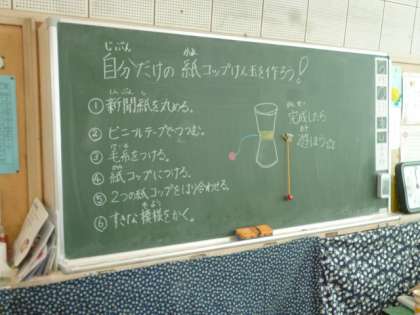 自分だけの 紙コップけん玉を作ろう!
① 新聞紙を丸める。
② ビニルテープでつつむ。
③ 毛糸をつける。
④ 紙コップにつける。
⑤ 2つの紙コップをはり合わせる。
⑥ すきな模様をかく。
完成したら
遊ぼう☆